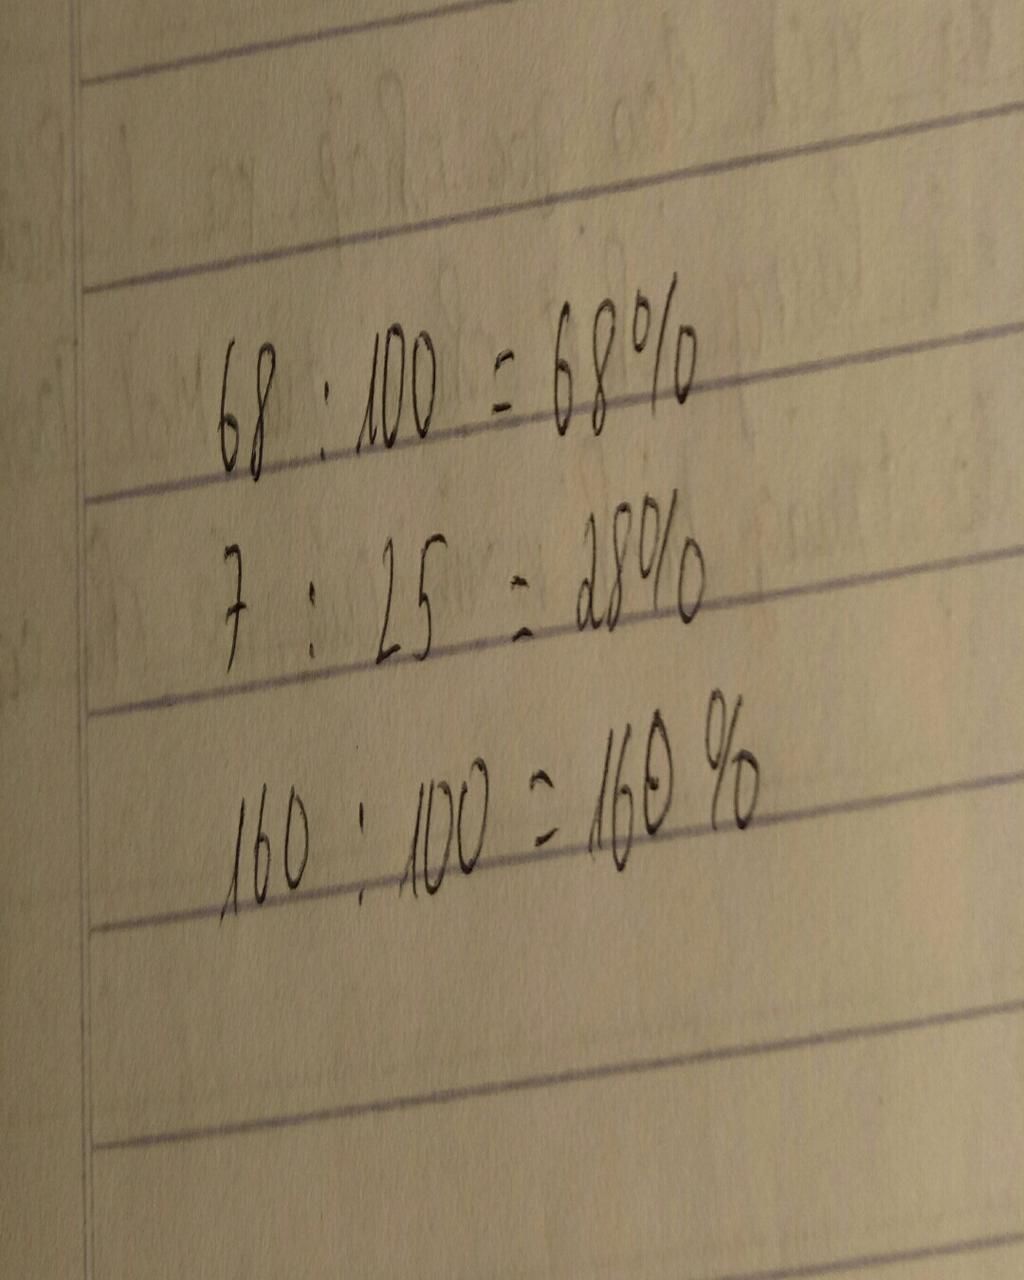 68 : 100 = 68%
7 : 25 = 28%
160 : 100 = 160 %